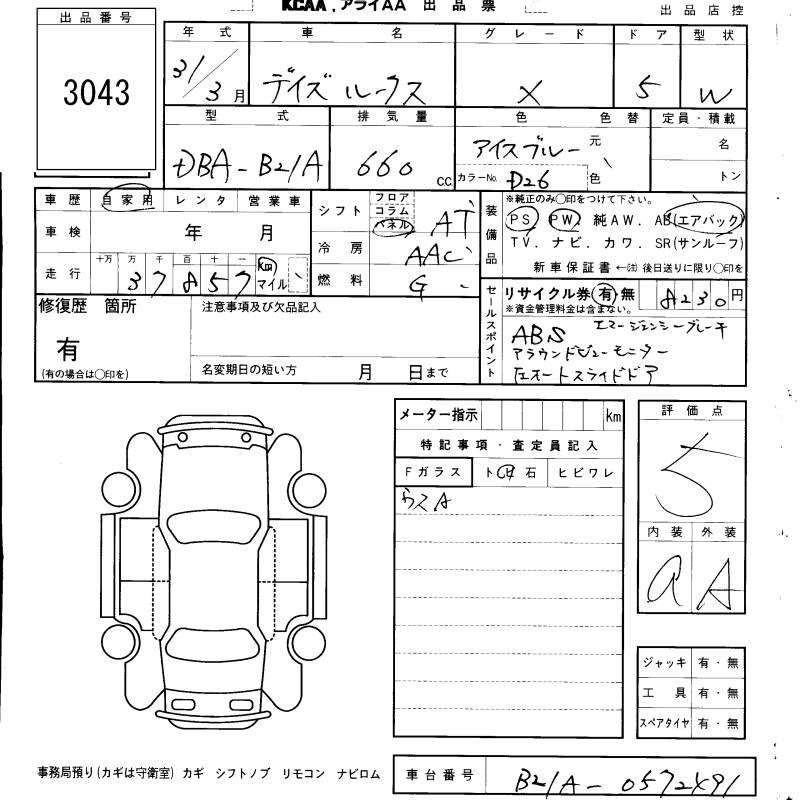 KCAA.アライAA 出品票
出品店控
出品番号
3043
年式 車名 グレード ドア 型状
31/3月 デイズルークス X 5 W
型式 排気量 色 色替 定員・積載
DBA-B21A 660cc. アイスブルー 元色 名
カラーNo. D26 トン
車歴 自家用 レンタ 営業車
車検 年 月
走行 十万 万 千 百 十 一
37857 Km マイル
シフト フロア コラム パネル AT
冷房 AAC
燃料 G
装備品
※純正のみ○印をつけて下さい。
PS PW 純AW. AB(エアバック)
TV. ナビ. カワ. SR(サンルーフ)
新車保証書←㊟後日送りに限り○印を
修復歴 箇所
有
(有の場合は○印を)
注意事項及び欠品記入
名変期日の短い方 月 日まで
セールスポイント
リサイクル券 有 無 8230円
※資金管理料金は含まない。
ABS エマージェンシーブレーキ
アラウンドビューモニター
左オートスライドドア
メーター指示 km
特記事項・査定員記入
Fガラス ト石 ヒビワレ
ウスA
評価点
5
内装 外装
a A
ジャッキ 有・無
工具 有・無
スペアタイヤ 有・無
事務局預り(カギは守衛室) カギ シフトノブ リモコン ナビロム
車台番号 B21A-0572491